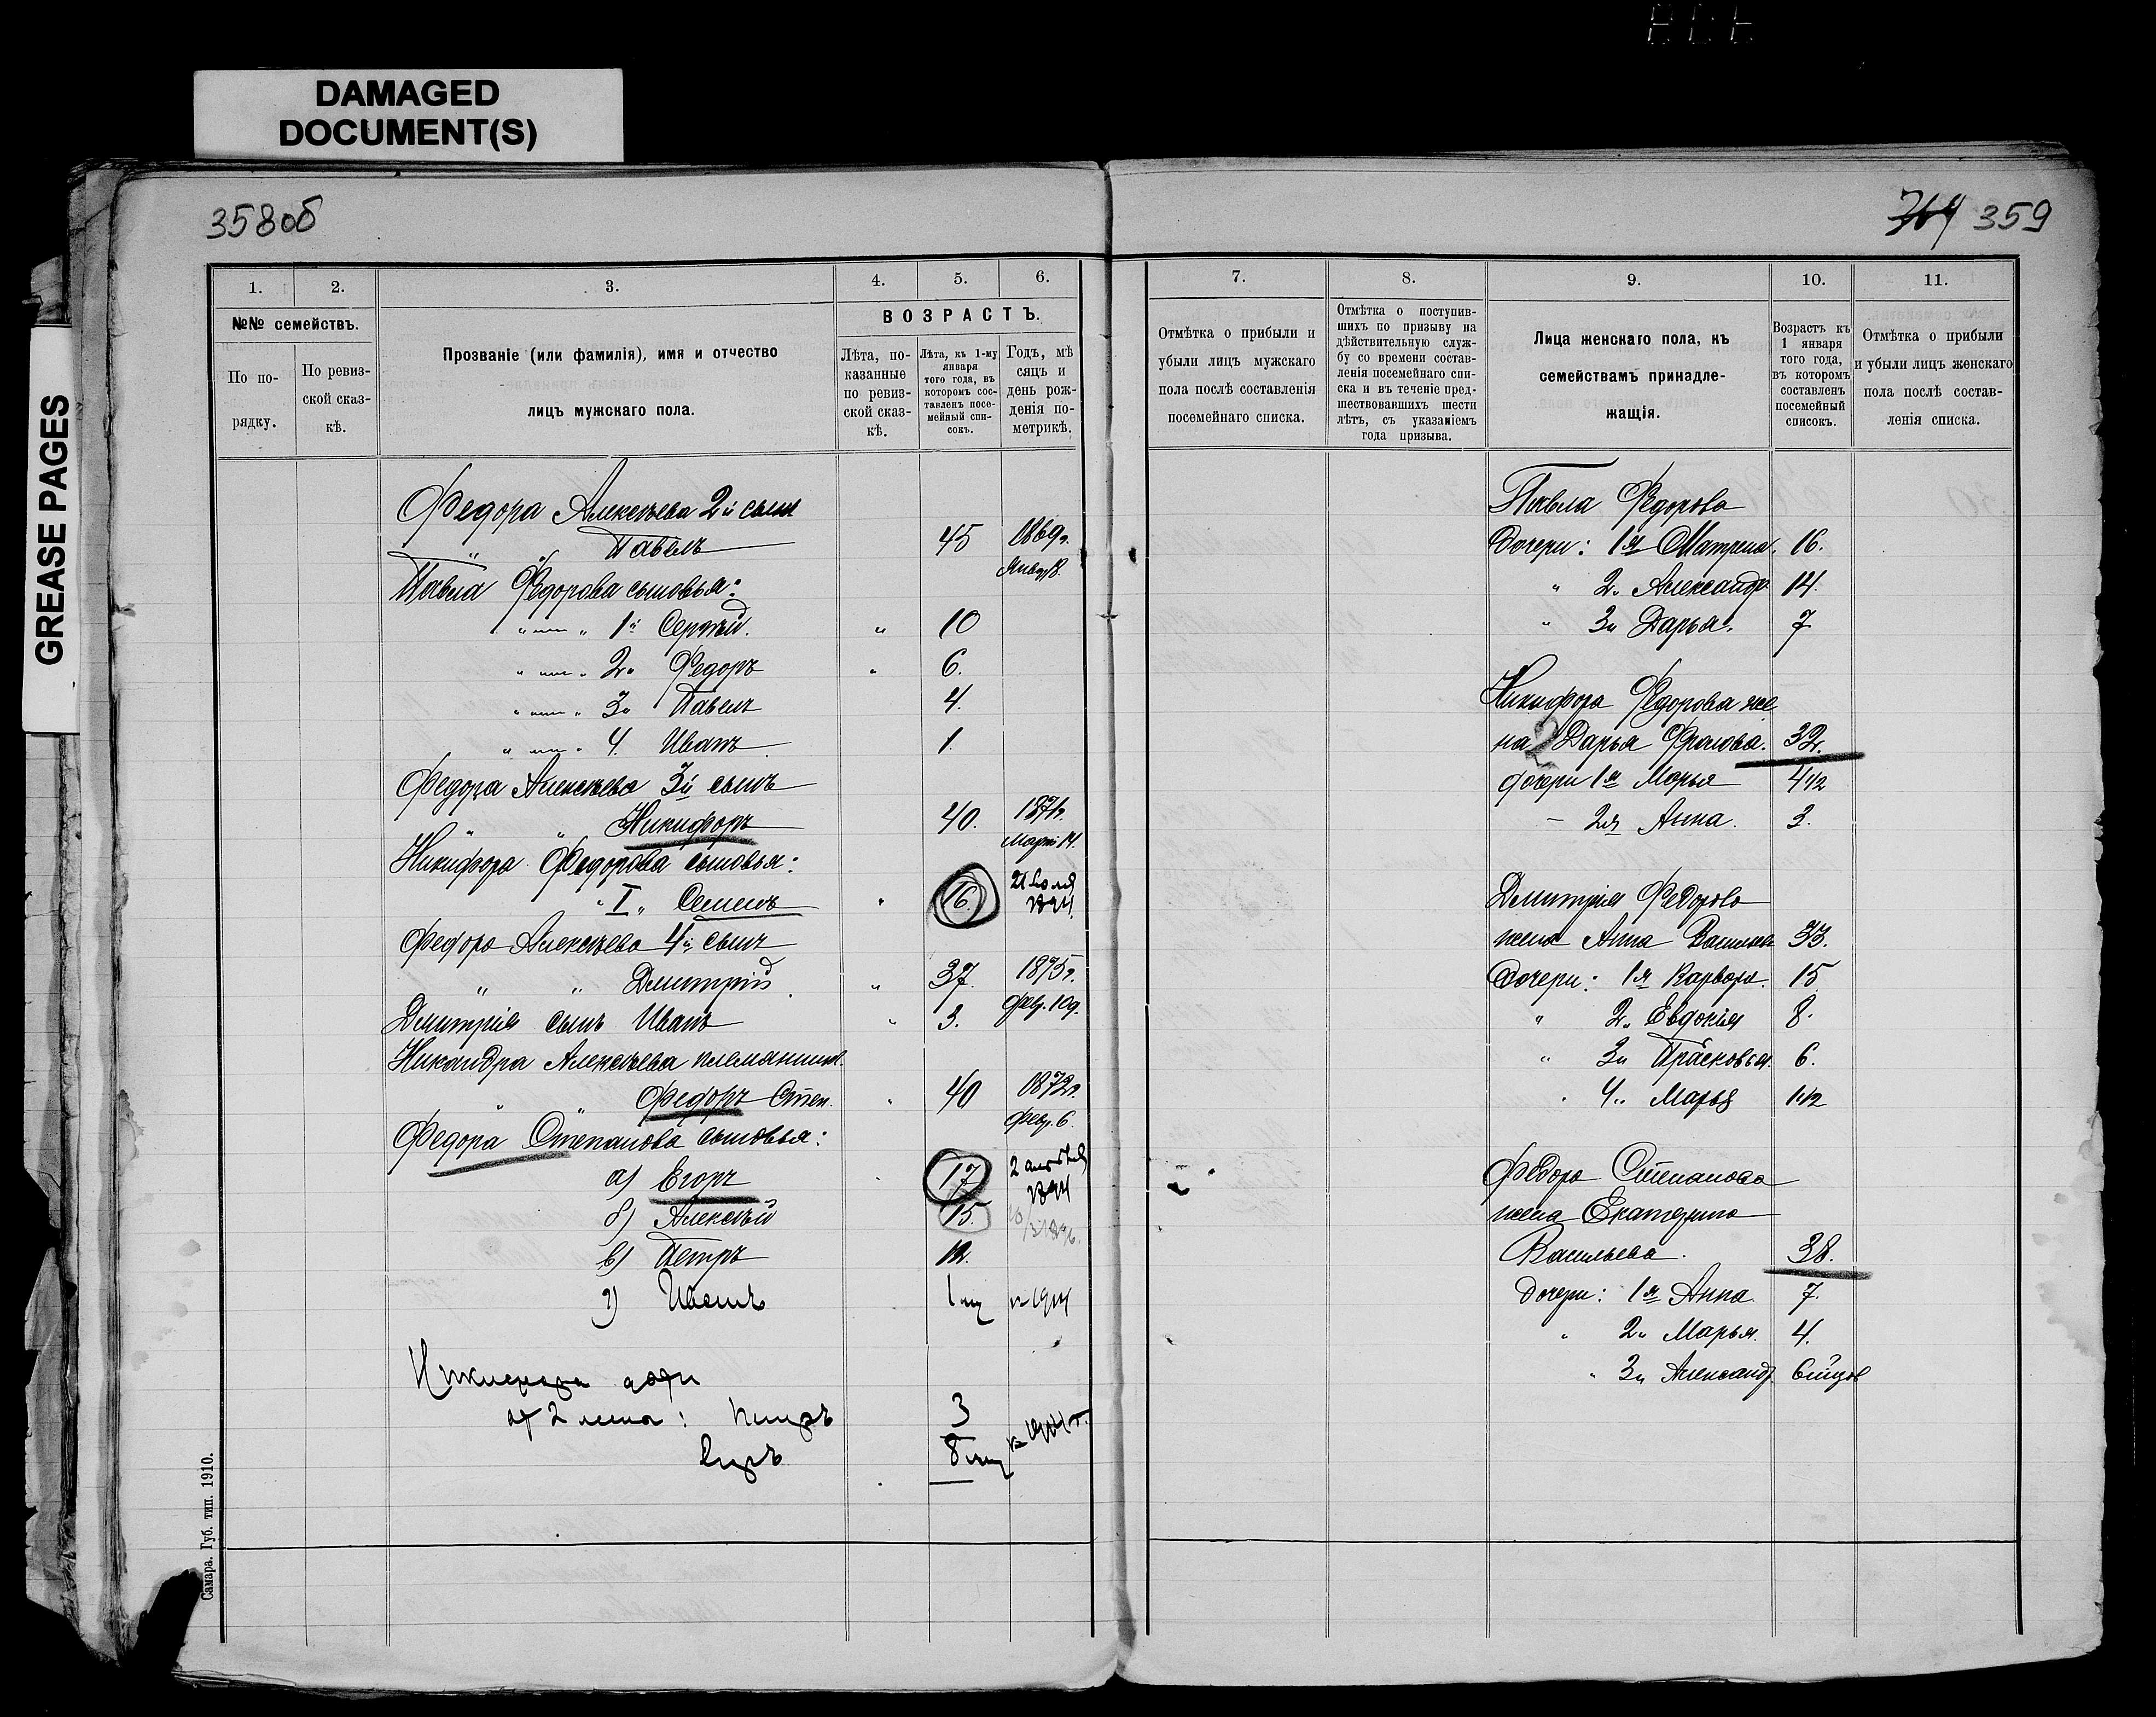 DAMAGED
DOCUMENT(S)
GREASE PAGES
358об
359
1.
2.
3.
4.
5.
6.
№№ семействъ.
По по-
рядку.
По ревиз-
ской сказ-
кѣ.
Прозваніе (или фамилія), имя и отчество
лицъ мужскаго пола.
ВОЗРАСТЪ.
Лѣта, по-
казанные
по ревиз-
ской сказ-
кѣ.
Лѣта, къ 1-му
января
того года, въ
которомъ сос-
тавленъ посе-
мейный спи-
сокъ.
Годъ, мѣ
сяцъ и
день рож-
денія по-
метрикѣ.
Федора Алексѣева 2й сынъ
" " Павелъ 45 1869г.
Янвр. 8.
Павла Федорова сыновья:
" " 1й Сергѣй. " 10
" " 2" Федоръ " 6.
" " 3" Павелъ 4.
" " 4. Иванъ 1.
Федора Алексѣева 3й сынъ
" " Никифоръ 40. 1871г.
Март 14.
Никифора Федорова сыновья:
" I " Семенъ " 16.
Федора Алексѣева 4й сынъ
" " Дмитрій. " 37. 1875г.
Февр. 10д.
Дмитрія сынъ Иванъ " 3.
Никандра Алексѣева племянник.
" " Федоръ Степ. " 40 1872г.
Февр. 6.
Федора Степанова сыновья:
а) Егоръ 17
б) Алексѣй 15.
в) Петръ 12.
г) Иванъ
3
Самара. Губ. тип. 1910.
7.
8.
9.
10.
11.
Отмѣтка о прибыли и
убыли лицъ мужскаго
пола послѣ составленія
посемейнаго списка.
Отмѣтка о поступив-
шихъ по призыву на
дѣйствительную служ-
бу со времени состав-
ленія посемейнаго спи-
ска и въ теченіе пред-
шествовавшихъ шести
лѣтъ, съ указаніемъ
года призыва.
Лица женскаго пола, къ
семействамъ принадле-
жащія.
Возрастъ къ
1 января
того года,
въ которомъ
составленъ
посемейный
списокъ.
Отмѣтка о прибыли
и убыли лицъ женскаго
пола послѣ состав-
ленія списка.
Павла Федорова
Дочери: 1я Матрена. 16.
" 2" Александр 14.
" 3" Дарья. 7
Никифора Федорова же
на Дарья Фролова. 32.
дочери 1я Марья 4 1/2
– 2я Анна. 3.
Дмитрія Федорова
жена Анна Васильев 33.
Дочери: 1я Варвара. 15
" 2" Евдокія 8.
" 3" Прасковья. 6.
" 4" Марья 1 1/2
Федора Степанова
жена Екатерина
Васильева. 38.
Дочери: 1я Анна 7.
" 2" Марья. 4.
" 3" Александр.